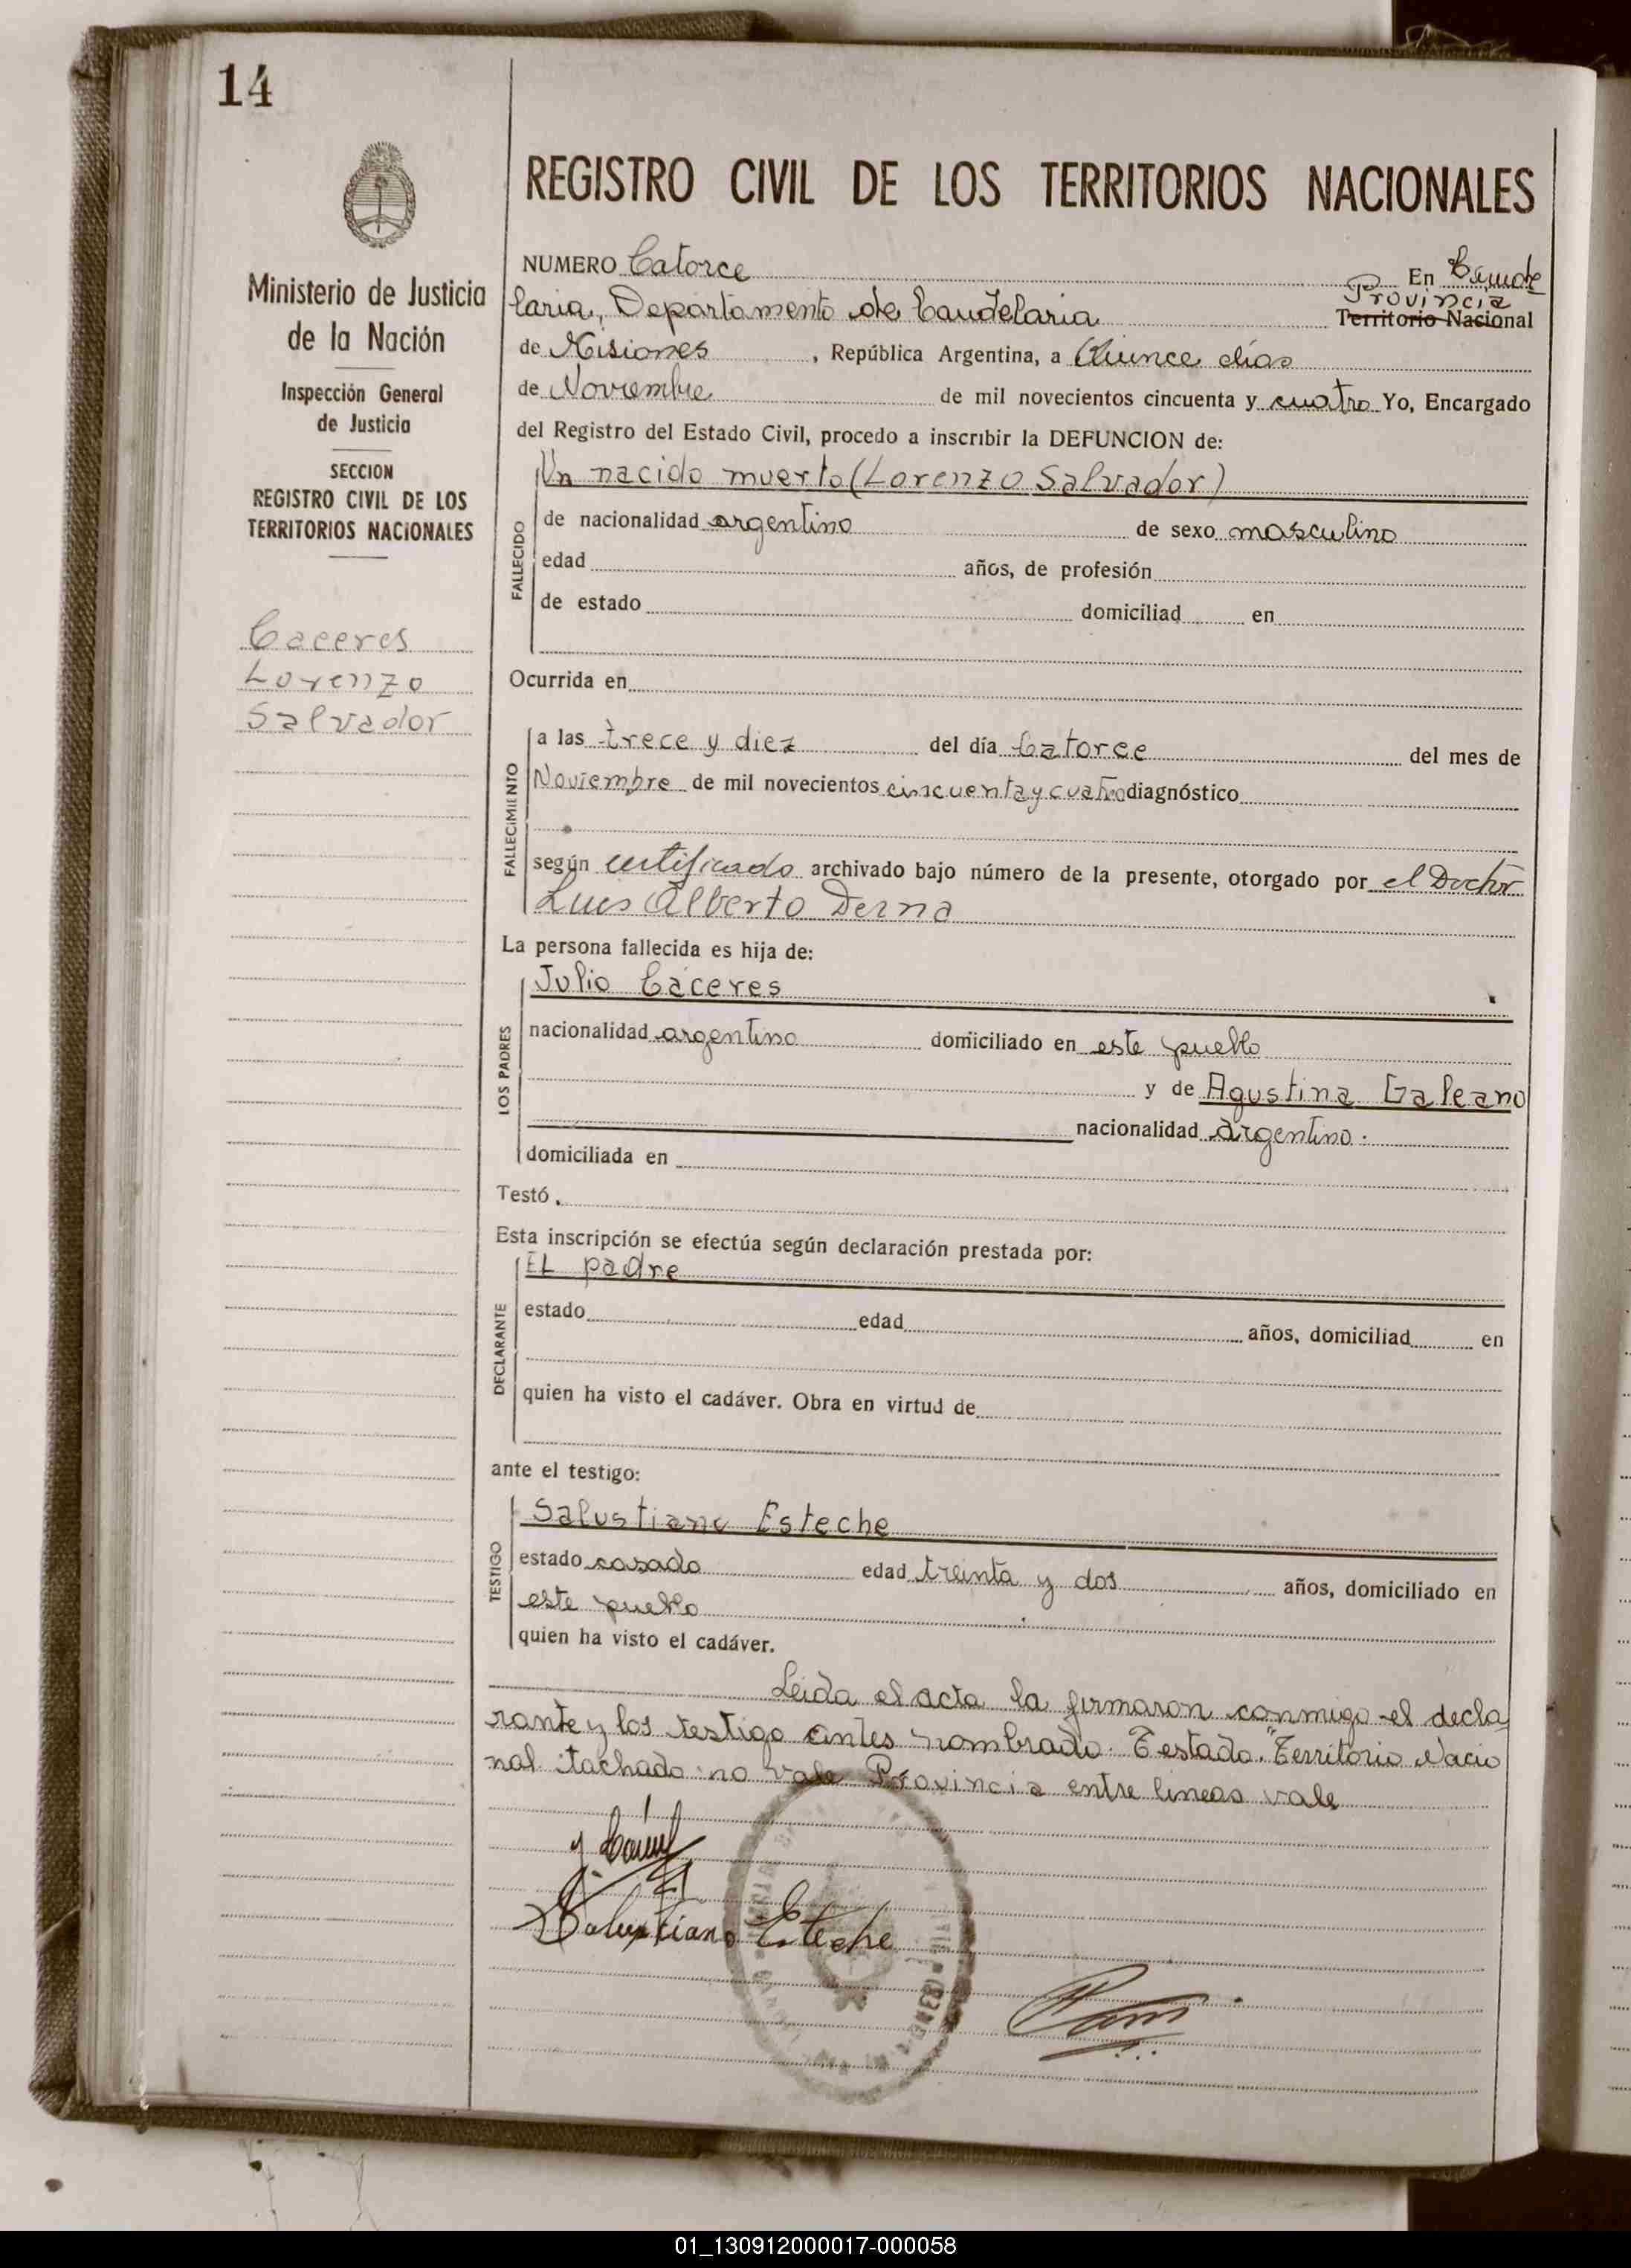 14
Ministerio de Justicia
de la Nación
Inspección General
de Justicia
SECCION
REGISTRO CIVIL DE LOS
TERRITORIOS NACIONALES
Caceres
Lorenzo
Salvador
REGISTRO CIVIL DE LOS TERRITORIOS NACIONALES
NUMERO Catorce En Cande
Provincia
laria, Departamento de Candelaria Territorio Nacional
de Misiones, República Argentina, a Quince días
de Noviembre de mil novecientos cincuenta y cuatro Yo, Encargado
del Registro del Estado Civil, procedo a inscribir la DEFUNCION de:
Un nacido muerto (Lorenzo Salvador)
FALLECIDO
de nacionalidad argentino de sexo masculino
edad años, de profesión
de estado domiciliad en
Ocurrida en
FALLECIMIENTO
a las trece y diez del día Catorce del mes de
Noviembre de mil novecientos cincuenta y cuatro diagnóstico
según certificado archivado bajo número de la presente, otorgado por el Doctor
Luis Alberto Derna
La persona fallecida es hija de:
LOS PADRES
Julio Cáceres
nacionalidad argentino domiciliado en este pueblo
y de Agustina Galeano
nacionalidad argentino.
domiciliada en
Testó.
Esta inscripción se efectúa según declaración prestada por:
DECLARANTE
EL padre
estado edad años, domiciliad en
quien ha visto el cadáver. Obra en virtud de
ante el testigo:
TESTIGO
Salustiano Esteche
estado casado edad treinta y dos años, domiciliado en
este pueblo
quien ha visto el cadáver.
Leida el acta la firmaron conmigo el decla
rante y los testigo antes nombrado. Testado. "Territorio Nacio
nal tachado no vale Provincia entre lineas vale
J Cáceres
Salustiano Esteche
01_130912000017-000058